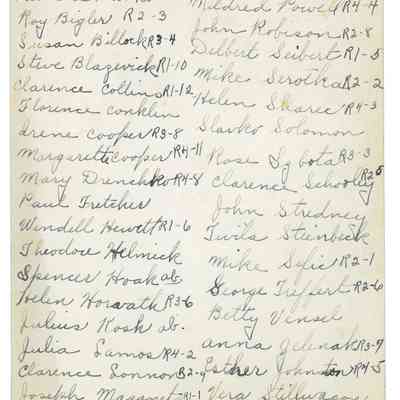 Roy Bigler R2-3
Susan Billock R3-4
Steve Blazevick R1-10
Clarence Collins R1-12
Florence Conklin
Irene Cooper R3-8
Margarette Cooper R4-11
Mary Drenchko R4-8
Paul Fretcher
Windell Hewett R1-6
Theodore Helmick
Spencer Hoak ab.
Helen Horvath R3-6
Julius Kosk ab.
Julia Lamos R4-2
Clarence Lonnon R2-4
Joseph R1-1
Mildred Powell R4-4
John Robison R2-8
Delbert Seibert R1-5
Mike Serotka R2-2
Helen Skarec R4-3
Slavko Solomon
Rose Sgbota R3-3
Clarence Schooley R2-5
John Stredney
Twila Steinbick
Mike Sific R2-1
George R2-6
Betty Vensel
Anna Zelenak R3-9
Esther Johnston R4-5
Vera